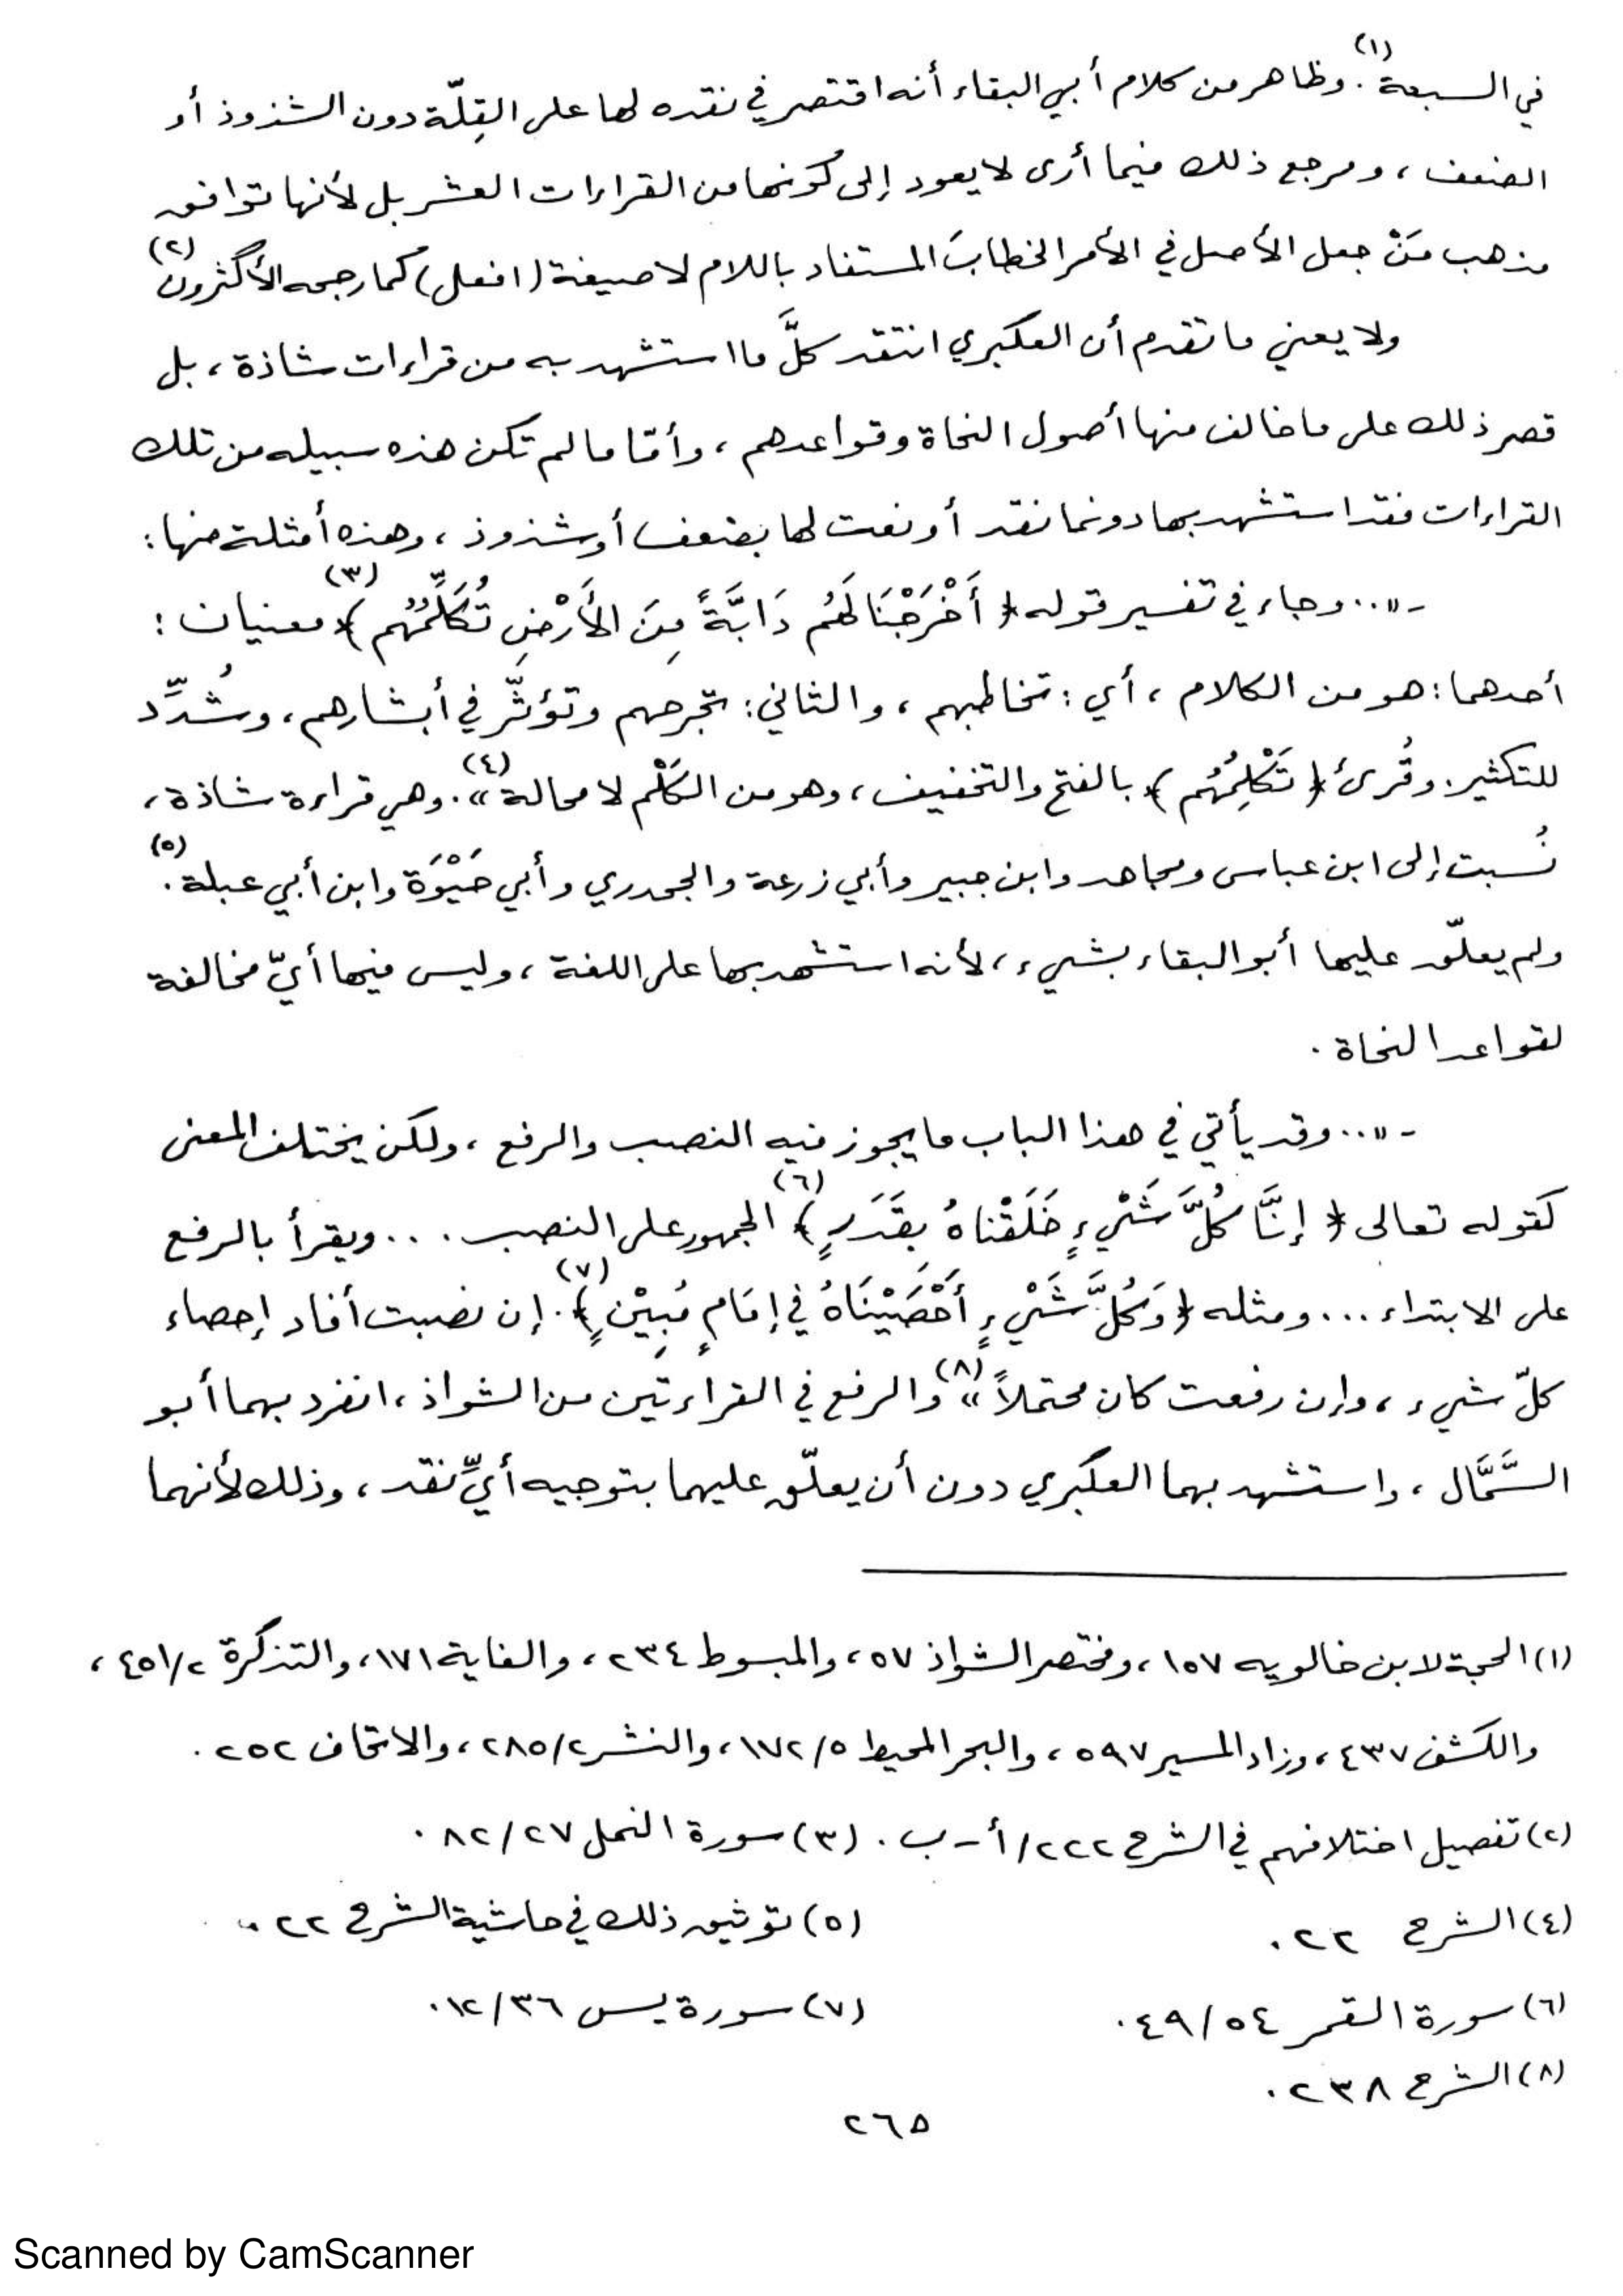 في السبعة(١). وظاهر من كلام أبي البقاء أنه اقتصر في نقده لها على القِلّة دون الشذوذ أو
الضعف، ومرجع ذلك فيما أرى لا يعود إلى كونها من القراءات العشر بل لأنها توافق
مذهب مَنْ جعل الأصل في الأمر الخطابَ المستفاد باللام لا صيغة (افعل) كما رجحه الأكثرون(٢)
ولا يعني ما تقدم أن العكبري انتقد كلَّ ما استشهد به من قراءات شاذة، بل
قصر ذلك على ما خالف منها أصول النحاة وقواعدهم، وأمّا ما لم تكن هذه سبيله من تلك
القراءات فقد استشهد بها دونما نقد أو نعت لها بضعف أو شذوذ، وهذه أمثلة منها:
- «... وجاء في تفسير قوله ﴿أَخْرَجْنَا لَهُم دَابَّةً مِنَ الأَرْضِ تُكَلِّمُهُم﴾(٣) معنيان:
أحدهما: هو من الكلام، أي: تخاطبهم، والثاني: تجرحهم وتؤثّر في أبشارهم، وشُدِّد
للتكثير. وقُرئ ﴿تَكْلِمُهُم﴾ بالفتح والتخفيف، وهو من الكَلْم لا محالة»(٤). وهي قراءة شاذة،
نُسبت إلى ابن عباس ومجاهد وابن جبير وأبي زرعة والجحدري وأبي حَيْوَة وابن أبي عبلة(٥).
ولم يعلّق عليها أبو البقاء بشيء، لأنه استشهد بها على اللغة، وليس فيها أيّ مخالفة
لقواعد النحاة.
- «... وقد يأتي في هذا الباب ما يجوز فيه النصب والرفع، ولكن يختلف المعنى
كقوله تعالى ﴿إنَّا كُلَّ شَيْءٍ خَلَقْناهُ بِقَدَرٍ﴾(٦) الجمهور على النصب ... ويقرأ بالرفع
على الابتداء ... ومثله ﴿وَكُلَّ شَيْءٍ أَحْصَيْنَاهُ في إمَامٍ مُبِيْنٍ﴾(٧). إن نصبت أفاد إحصاء
كلّ شيء، وإن رفعت كان محتملاً»(٨) والرفع في القراءتين من الشواذ، انفرد بهما أبو
السَّمَّال، واستشهد بهما العكبري دون أن يعلّق عليهما بتوجيه أيِّ نقد، وذلك لأنهما
(١) الحجة لابن خالويه ١٥٧، ومختصر الشواذ ٥٧، والمبسوط ٢٣٤، والغاية ١٧١، والتذكرة ٤٥١/٢،
والكشف ٤٣٧، وزاد المسير ٥٩٧، والبحر المحيط ١٧٢/٥، والنشر ٢٨٥/٢، والاتحاف ٢٥٢.
(٢) تفصيل اختلافهم في الشرح ٢٢٢/أ - ب. (٣) سورة النمل ٨٢/٢٧.
(٤) الشرح ٢٢. (٥) توثيق ذلك في حاشية الشرح ٢٢.
(٦) سورة القمر ٤٩/٥٤. (٧) سورة يس ١٢/٣٦.
(٨) الشرح ٢٣٨.
٢٦٥
Scanned by CamScanner